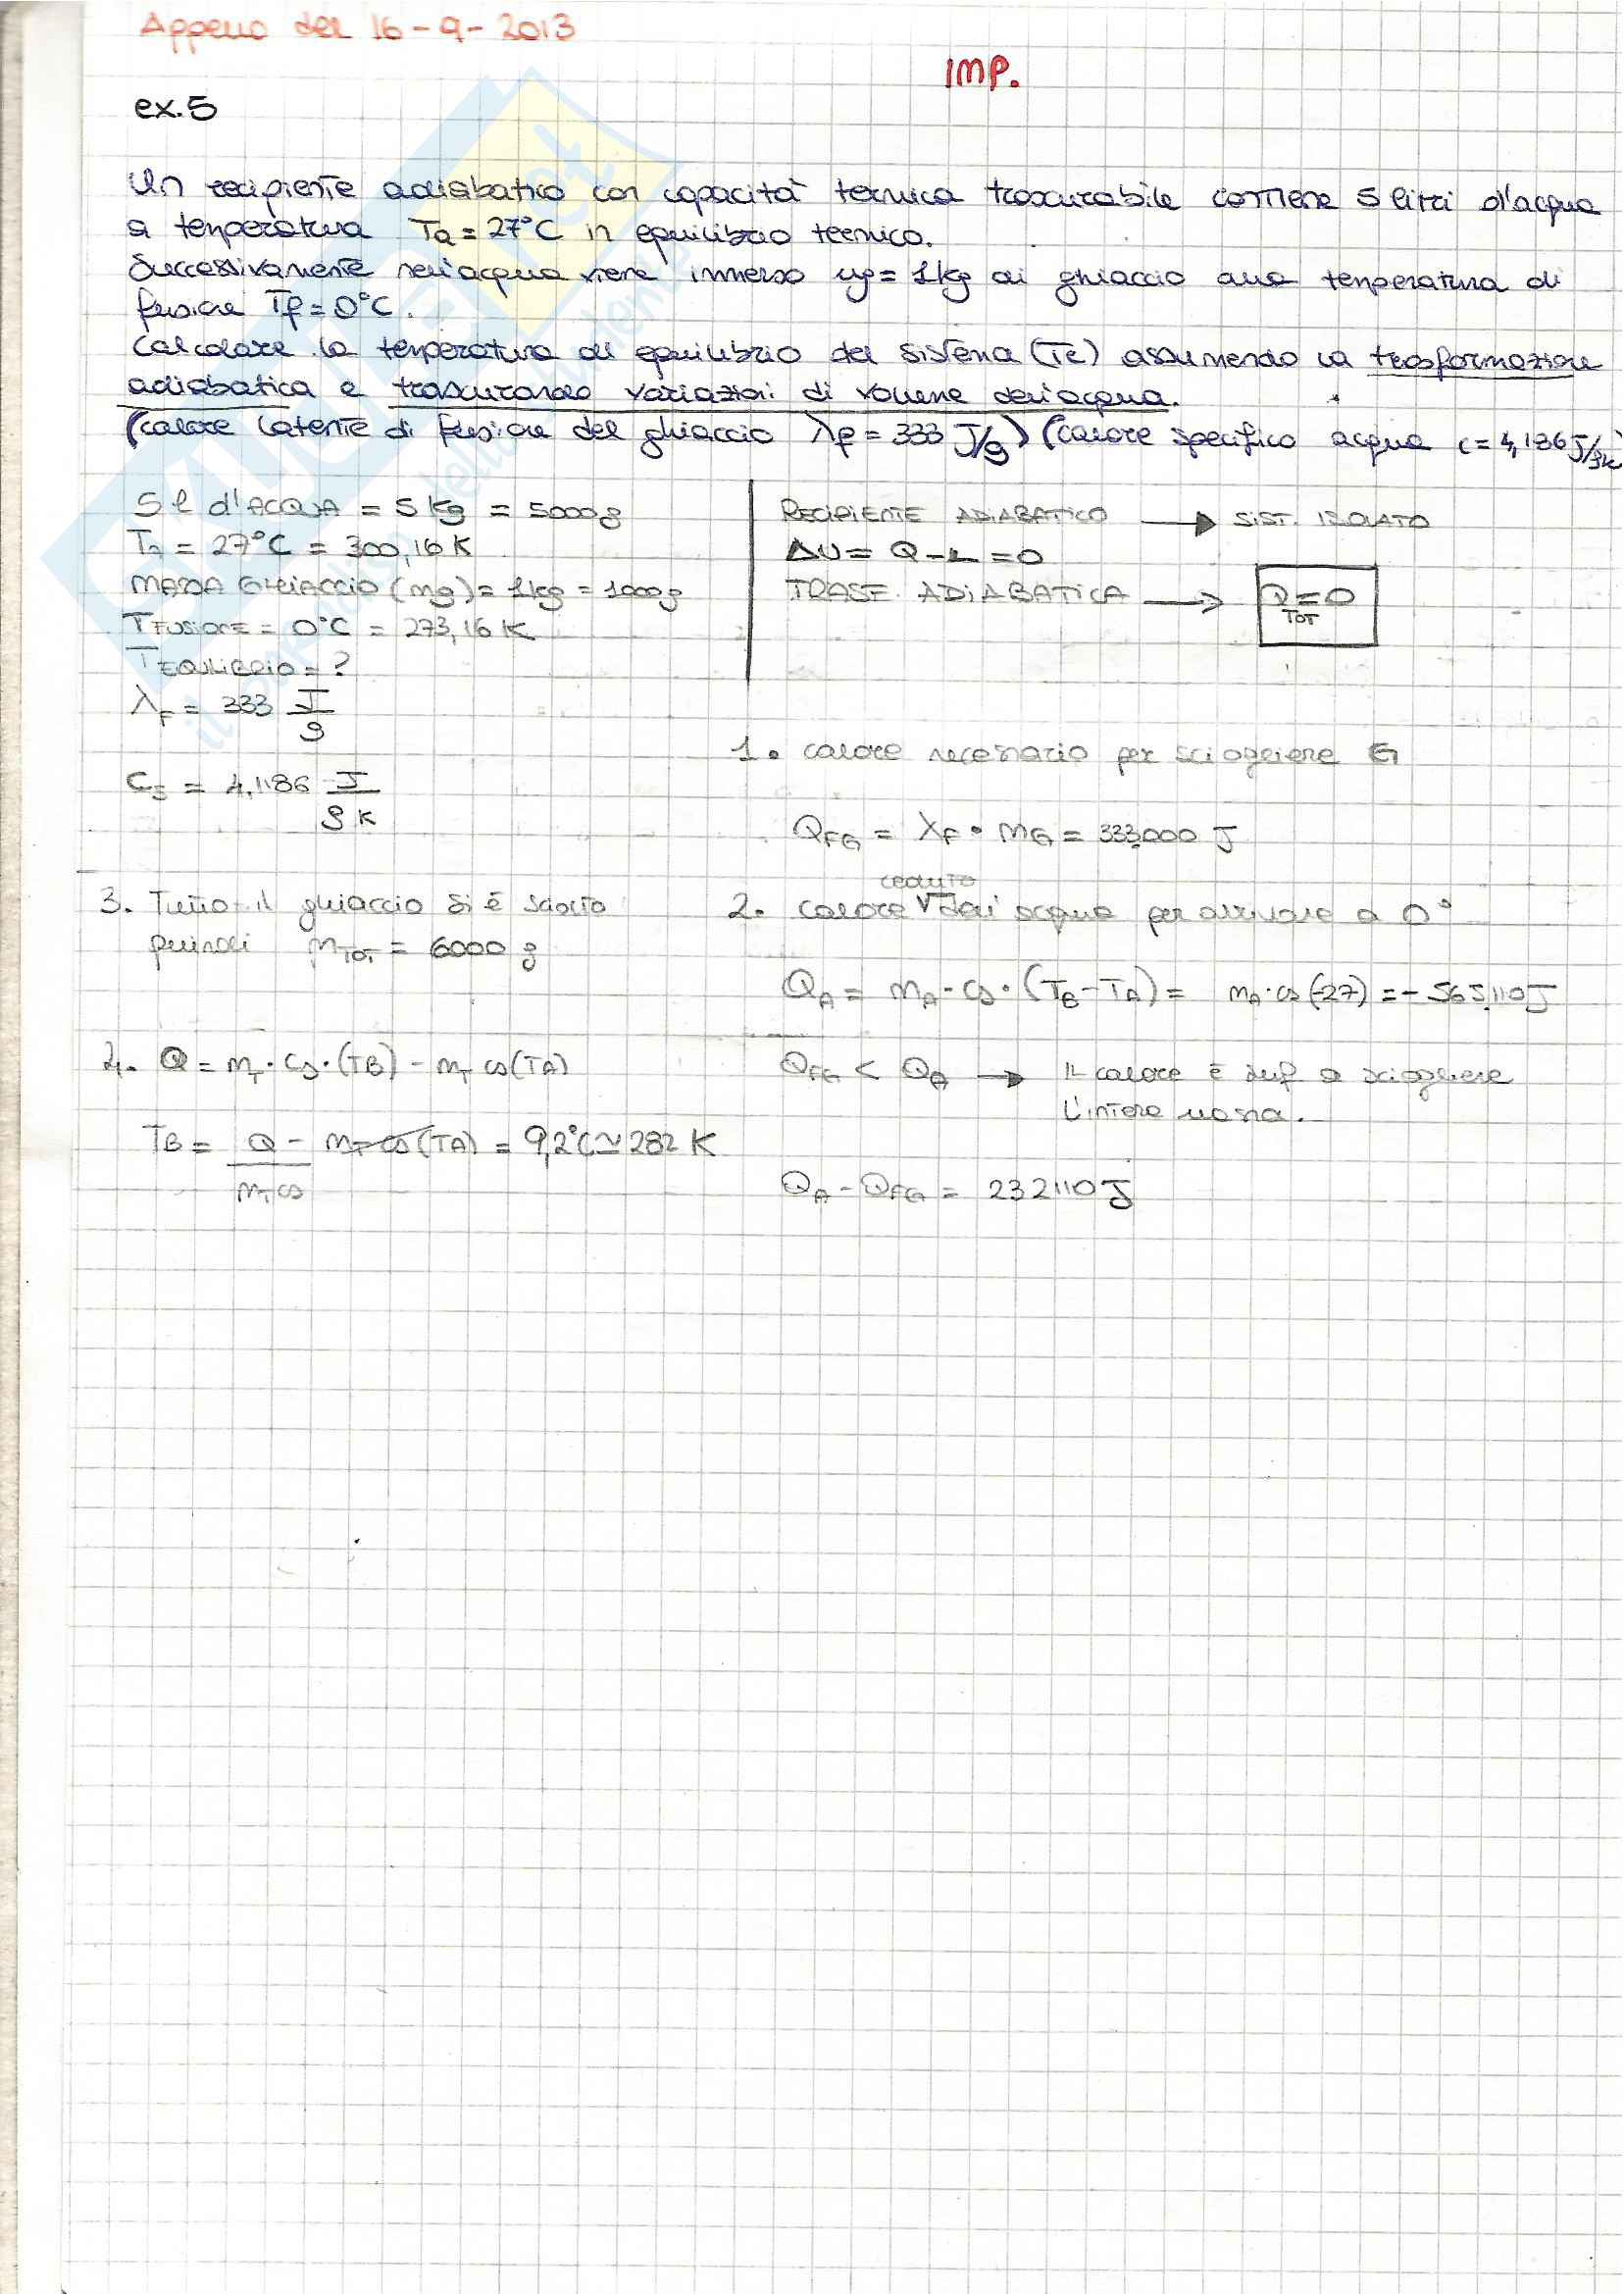 Appello del 16-9-2013
IMP.
ex.5
Un recipiente adiabatico con capacità termica trascurabile contiene 5 litri d'acqua
a temperatura Ta = 27°C in equilibrio termico.
Successivamente nell'acqua viene immerso mg = 1kg di ghiaccio alla temperatura di
fusione Tf = 0°C.
Calcolare la temperatura di equilibrio del sistema (Te) assumendo la trasformazione
adiabatica e trascurando variazioni di volume dell'acqua.
(calore latente di fusione del ghiaccio λf = 333 J/g) (calore specifico acqua c = 4,186 J/gK
5 l d'ACQUA = 5 kg = 5000 g
Ta = 27°C = 300,16 K
MASSA GHIACCIO (mg) = 1kg = 1000 g
TFUSIONE = 0°C = 273,16 K
TEQUILIBRIO = ?
λF = 333 J/g
Cs = 4,1186 J/gK
RECIPIENTE ADIABATICO → SIST. ISOLATO
ΔU = Q - L = 0
TRASF. ADIABATICA → QTOT = 0
1. calore necessario per sciogliere G
QFG = λF · MG = 333.000 J
2. calore ceduto dall'acqua per arrivare a 0°
QA = MA · Cs · (TB - TA) = MA · cs (-27) = - 565.110 J
QFG < QA → il calore è suf a sciogliere
l'intera massa.
QA - QFG = 232110 J
3. Tutto il ghiaccio si è sciolto
quindi MTOT = 6000 g
4. Q = MT · Cs · (TB) - MT cs (TA)
TB = Q/MT cs - MT cs (TA) = 9,2°C ≃ 282 K